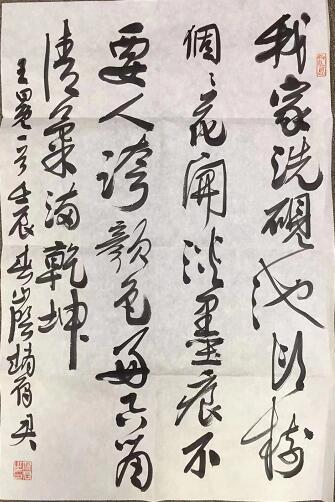 我家洗硯池頭樹
個々花開淡墨痕不
要人誇顏色好只留
清氣滿乾坤
王冕一首壬辰春山陰